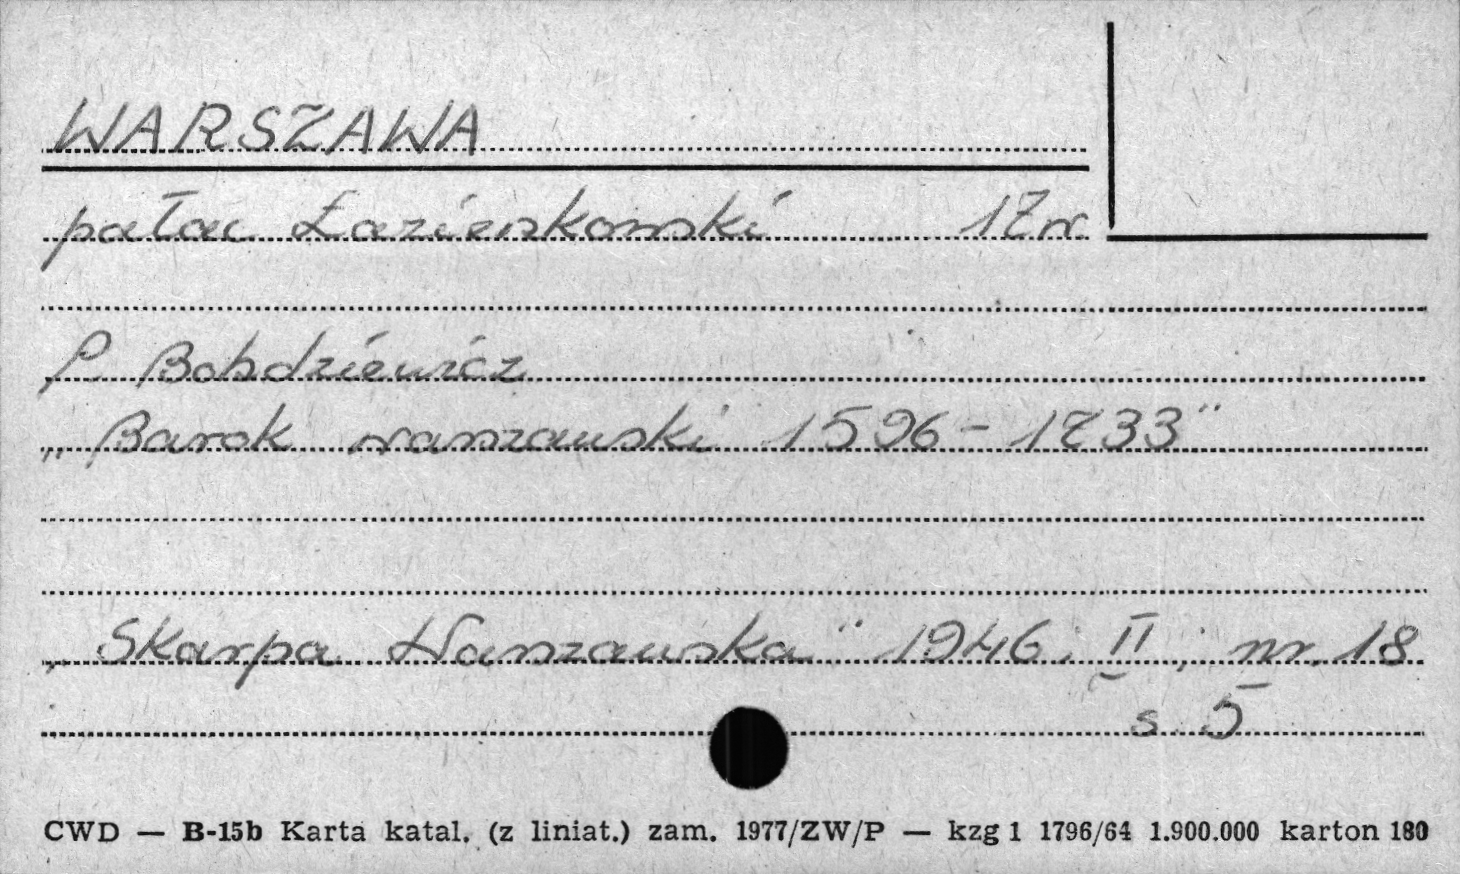 WARSZAWA
pałac Łazienkowski 17 w
P Bohdziewicz
„Barok warszawski 1596-1733"
„Skarpa Warszawska" 1946; II; nr. 18
s. 5
CWD — B-15b Karta katal. (z liniat.) zam. 1977/ZW/P — kzg 1 1796/64 1.900.000 karton 180